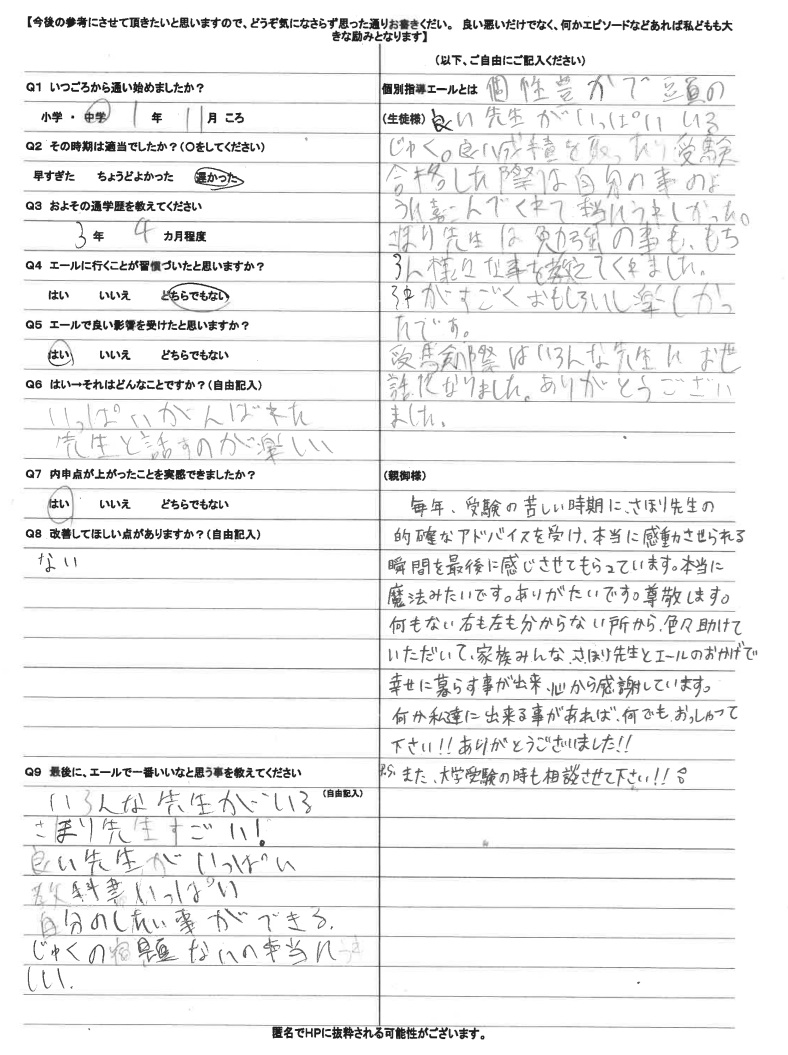 【今後の参考にさせて頂きたいと思いますので、どうぞ気になさらず思った通りお書きくだい。 良い悪いだけでなく、何かエピソードなどあれば私どもも大
きな励みとなります】
Q1 いつごろから通い始めましたか？
小学 ・ 中学 1 年 11 月 ころ
Q2 その時期は適当でしたか？(○をしてください)
早すぎた ちょうどよかった 遅かった
Q3 およその通学歴を教えてください
3 年 4 カ月程度
Q4 エールに行くことが習慣づいたと思いますか？
はい いいえ どちらでもない
Q5 エールで良い影響を受けたと思いますか？
はい いいえ どちらでもない
Q6 はい→それはどんなことですか？(自由記入)
いっぱいがんばれた
先生と話すのが楽しい
Q7 内申点が上がったことを実感できましたか？
はい いいえ どちらでもない
Q8 改善してほしい点がありますか？(自由記入)
ない
Q9 最後に、エールで一番いいなと思う事を教えてください
(自由記入)
いろんな先生がいる
さほり先生すごい!
良い先生がいっぱい
教科書いっぱい
自分のしたい事ができる.
じゅくの宿題ないの本当にうれ
しい.
(以下、ご自由にご記入ください)
個別指導エールとは 個性豊かで全員の
(生徒様) 良い先生がいっぱいいる
じゅく。良い成績を取ったり受験
合格した際は自分の事のよ
うに喜こんでくれて本当にうれしかった。
さほり先生は勉強の事も、もち
ろん様々な事を教えてくれました。
話がすごくおもしろいし楽しかっ
たです。
受験の際はいろんな先生にお世
話になりました。ありがとうござい
ました。
(親御様)
毎年、受験の苦しい時期に、さほり先生の
的確なアドバイスを受け、本当に感動させられる
瞬間を最後に感じさせてもらっています。本当に
魔法みたいです。ありがたいです。尊敬します。
何もない右も左も分からない所から、色々助けて
いただいて、家族みんな、さほり先生とエールのおかげで
幸せに暮らす事が出来、心から感謝しています。
何か私達に出来る事があれば、何でも、おっしゃって
下さい!!ありがとうございました!!
P.S. また、大学受験の時も相談させて下さい!!
匿名でHPに抜粋される可能性がございます。